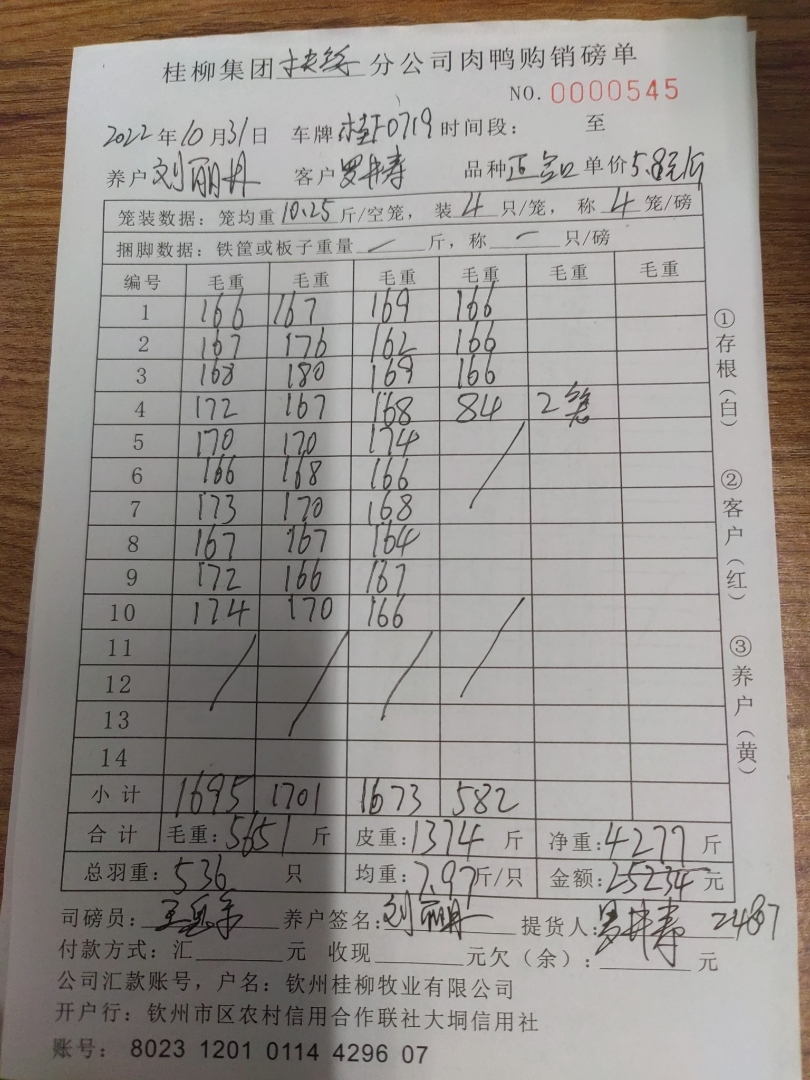 桂柳集团扶绥分公司肉鸭购销磅单
NO. 0000545
2022年10月31日 车牌桂F0719时间段： 至
养户刘丽丹 客户罗井寿 品种正 单价5.8元/斤
笼装数据：笼均重10.25斤/空笼，装4只/笼，称4笼/磅
捆脚数据：铁筐或板子重量/斤，称一只/磅
编号 毛重 毛重 毛重 毛重 毛重 毛重
1 166 167 169 166
2 167 176 162 166
3 168 180 169 166
4 172 167 168 84 2笼
5 170 170 174
6 166 168 166
7 173 170 168
8 167 167 164
9 172 166 167
10 174 170 166
11
12
13
14
小计 1695 1701 1673 582
合计 毛重：5651斤 皮重：1374斤 净重：4277斤
总羽重：536只 均重：7.97斤/只 金额：25234元
司磅员：王 养户签名：刘丽丹 提货人：罗井寿 24807
付款方式：汇 元 收现 元欠（余）： 元
公司汇款账号，户名：钦州桂柳牧业有限公司
开户行：钦州市区农村信用合作联社大垌信用社
账号：8023 1201 0114 4296 07
①存根（白）
②客户（红）
③养户（黄）